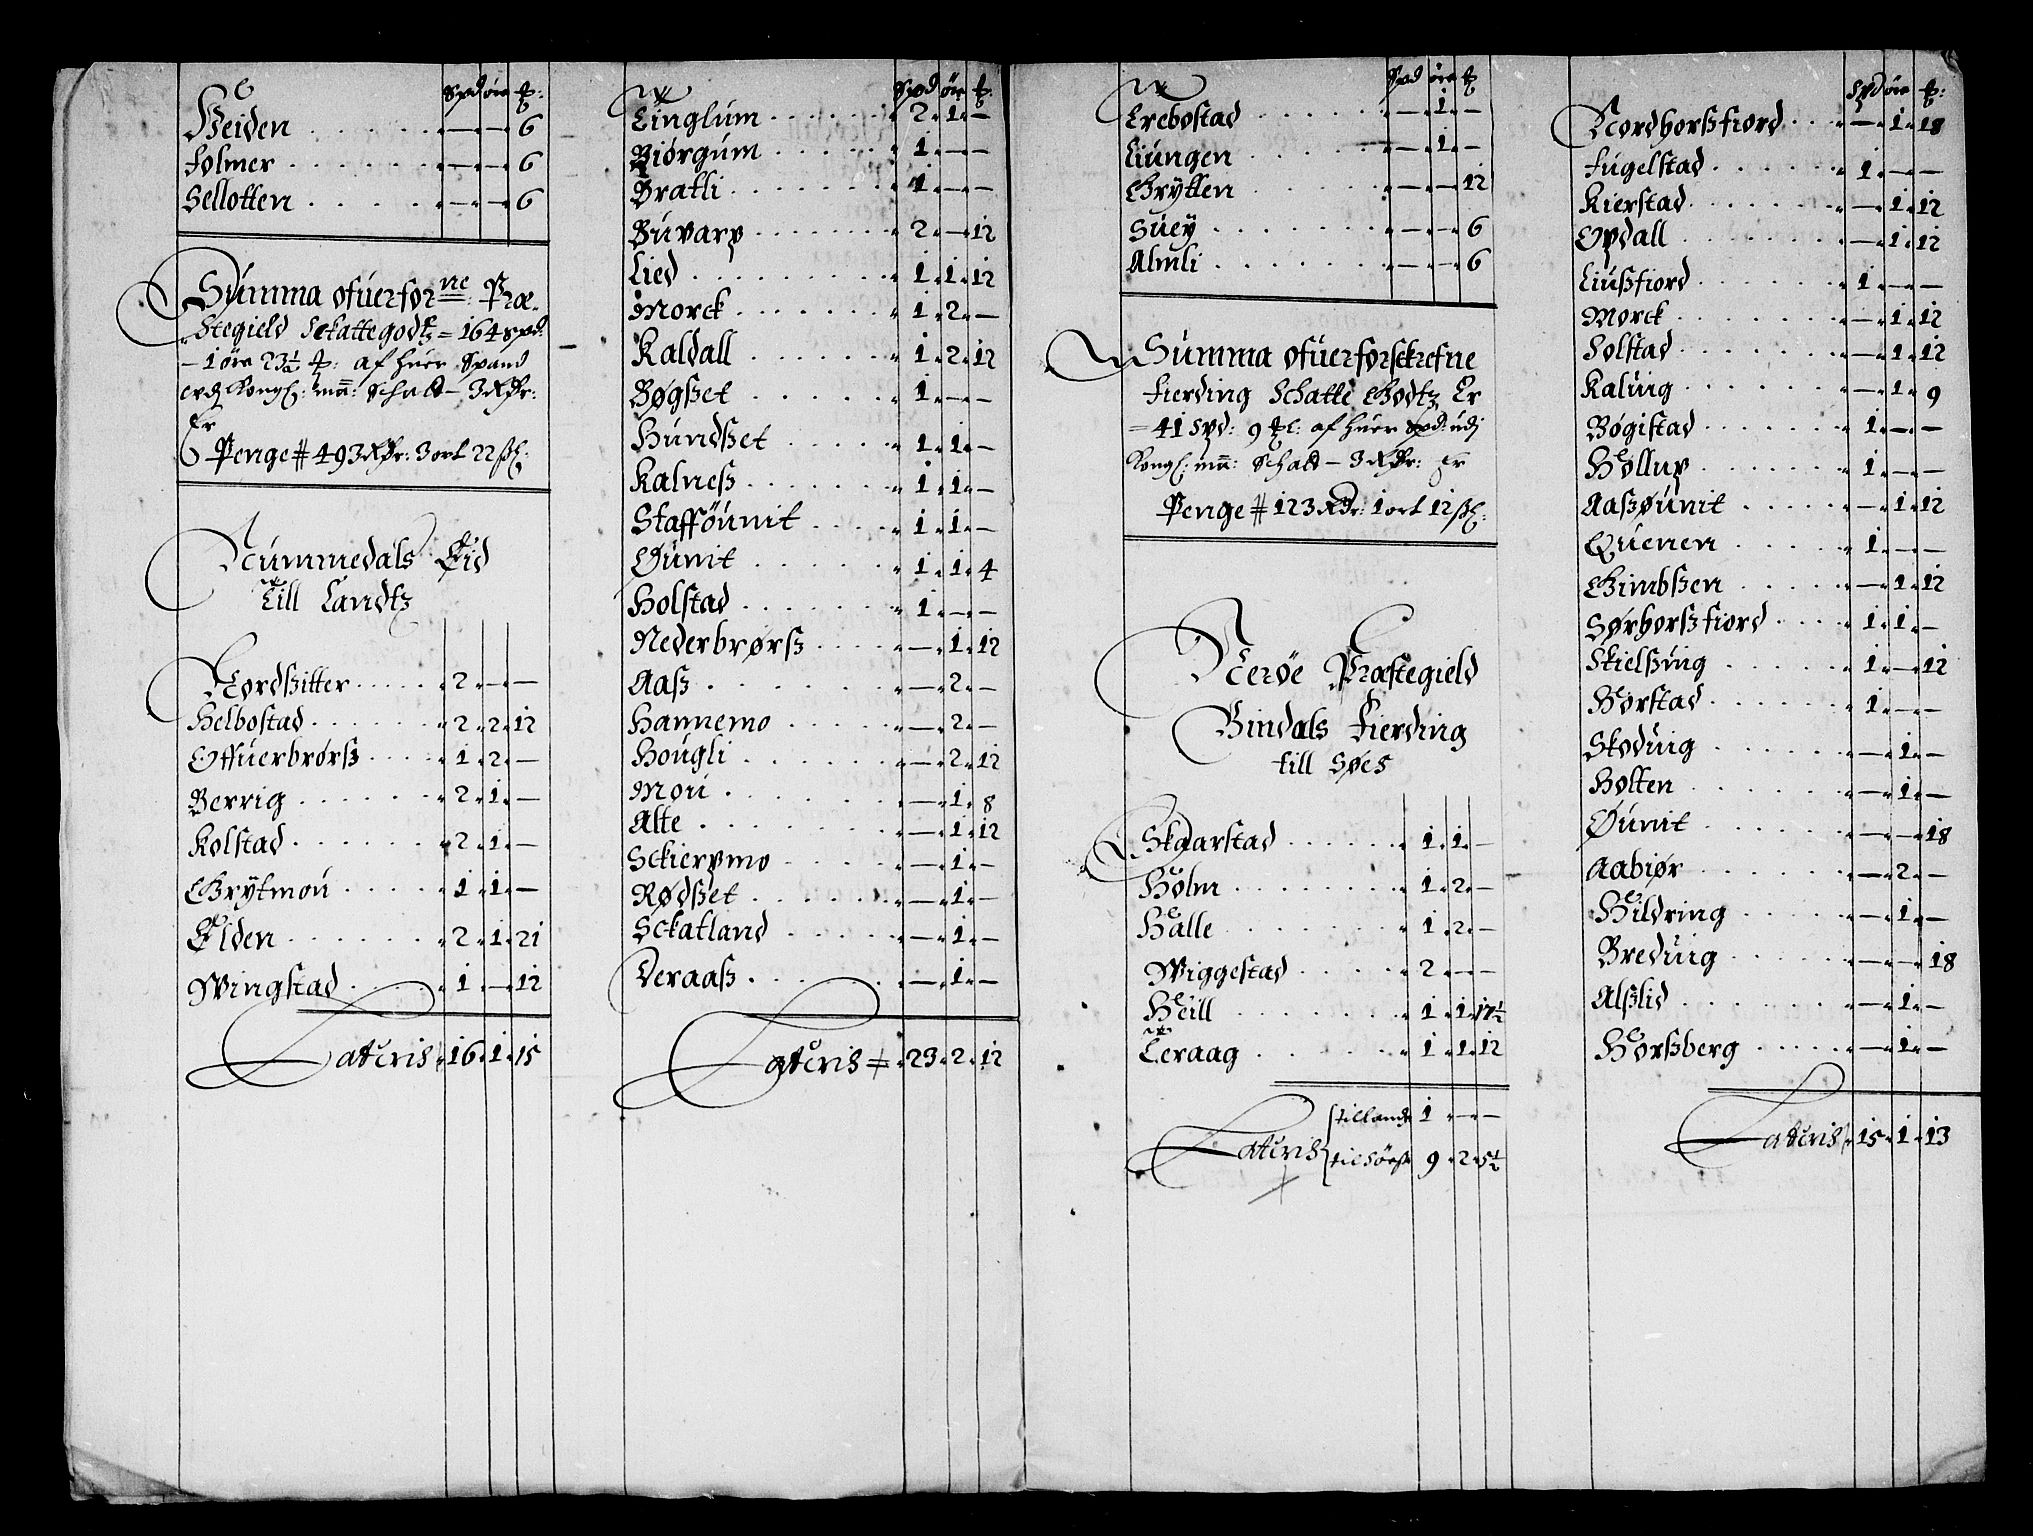 Spd öre ℔:
Heiden . . . . . — — 6
Folmer . . . . . — — 6
Sellotten . . . . — — 6
Summa ofuerfor ne: Præ-
stegield Sckattegodtz = 164 spd:
— 1 öre 23½ ℔: af huer Spand
Kongl: ma: Schatt — 3 Rdr:
Er
Penge # 493 Rdr: 3 ort 22 sk:
Nummedals Eid
Till Landtz
Nordsitter . . . . 2 — —
Helbostad . . . . 2 2 12
Offuerbrørß . . . 1 2 —
Berrig . . . . . 2 1 —
Kolstad . . . . . 2 1 —
Grytmou . . . . 1 1 —
Elden . . . . . 2 1 21
Wingstad . . . . 1 — 12
Lateris 16 1 15
Spd öre ℔:
Tinglum . . . . 2 1 —
Biörgum . . . . 1 — —
Bratli . . . . . 1 — —
Buvarp . . . . . 2 — 12
Lied . . . . . . 1 1 12
Morck . . . . . 1 2 —
Kaldall . . . . . 1 2 12
Bøgßet . . . . . 1 — —
Hundßet . . . . 1 1 —
Kalneß . . . . . 1 1 —
Stafföunit . . . . 1 1 —
Øunit . . . . . 1 1 4
Holstad . . . . . 1 — —
Nederbrørß . . . — 1 12
Aaß . . . . . . — 2 —
Hannemo . . . . — 2 —
Hougli . . . . . — 2 12
Mou . . . . . . — 1 8
Alte . . . . . . — 1 12
Sckierpmo . . . . — 1 —
Rødßet . . . . . — 1 —
Sckatland . . . . — 1 —
Deraaß . . . . . — 1 —
Lateris = 23 2 12
Spd öre ℔
Trebostad . . . . — 1 —
Liungen . . . . . — 1 —
Grytten . . . . . — — 12
Suey . . . . . . — — 6
Almli . . . . . . — — 6
Summa ofuerforskrefne
Fierding Schatte Godtz Er
= 41 Spd: 9 ℔: af huer Spd: udj
Kongl: ma: Schatt — 3 Rdr: Er
Penge # 123 Rdr: 1 ort 12 sk:
Nerøe Præstegield
Bindals Fierding
till Søes
Skaarstad . . . . 1 1 —
Holm . . . . . 1 2 —
Halle . . . . . 1 2 —
Wiggestad . . . . 2 — —
Heill . . . . . . 1 1 17½
Teraag . . . . . 1 1 12
Lateris { tillandtz 1 — —
til Söeß 9 2 5½
Spd öre ℔:
Nordhorßfiord . . . — 1 18
Fugelstad . . . . 1 — —
Kierstad . . . . . — 1 12
Opdall . . . . . — 1 12
Liußfiord . . . . 1 — —
Morck . . . . . — 1 12
Solstad . . . . . — 1 12
Kaluig . . . . . — 1 9
Bøgistad . . . . 1 — —
Hollup . . . . . 1 — —
Aaßøunit . . . . — 1 12
Quenen . . . . . 1 — —
Gimbßen . . . . — 1 12
Sørhorßfiord . . . 1 1 —
Skielßuig . . . . 1 — 12
Horstad . . . . . 1 — —
Skoduig . . . . . — 1 —
Holten . . . . . — 1 —
Øunit . . . . . — — 18
Aabiør . . . . . — 2 —
Hildring . . . . — 1 —
Breduig . . . . . — — 18
Alßlid . . . . . — 1 —
Horßberg . . . . — 1 —
Lateris 15 1 13